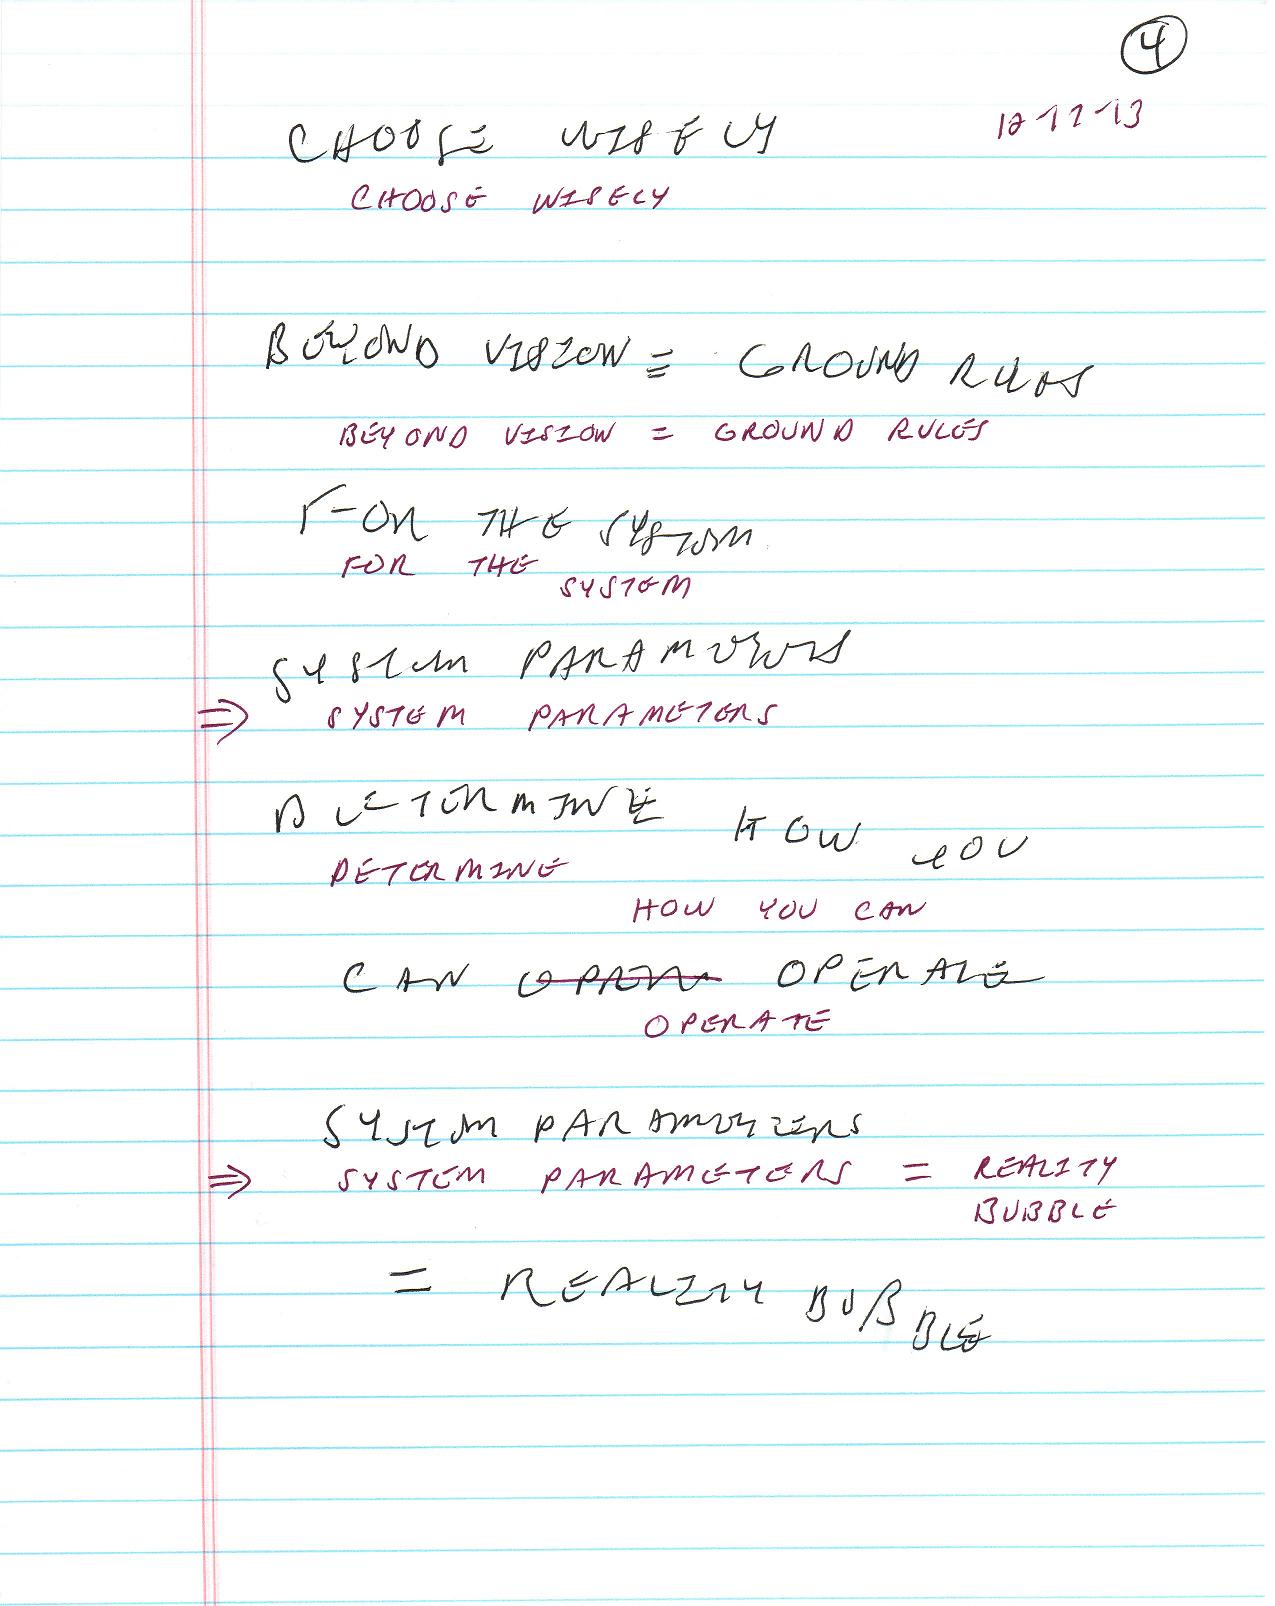 4
12-17-13
CHOOSE WISELY
CHOOSE WISELY
BEYOND VISION = GROUND RULES
BEYOND VISION = GROUND RULES
FOR THE SYSTEM
FOR THE
SYSTEM
SYSTEM PARAMETERS
⇒ SYSTEM PARAMETERS
DETERMINE HOW YOU
DETERMINE
HOW YOU CAN
CAN OPERATE
OPERATE
SYSTEM PARAMETERS
⇒ SYSTEM PARAMETERS = REALITY
BUBBLE
= REALITY BUBBLE